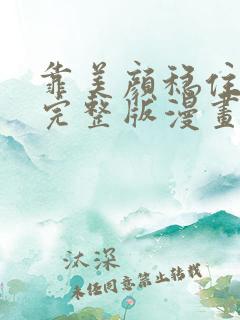 靠美顏穩住
完整版漫畫
汰深
未经同意禁止转载